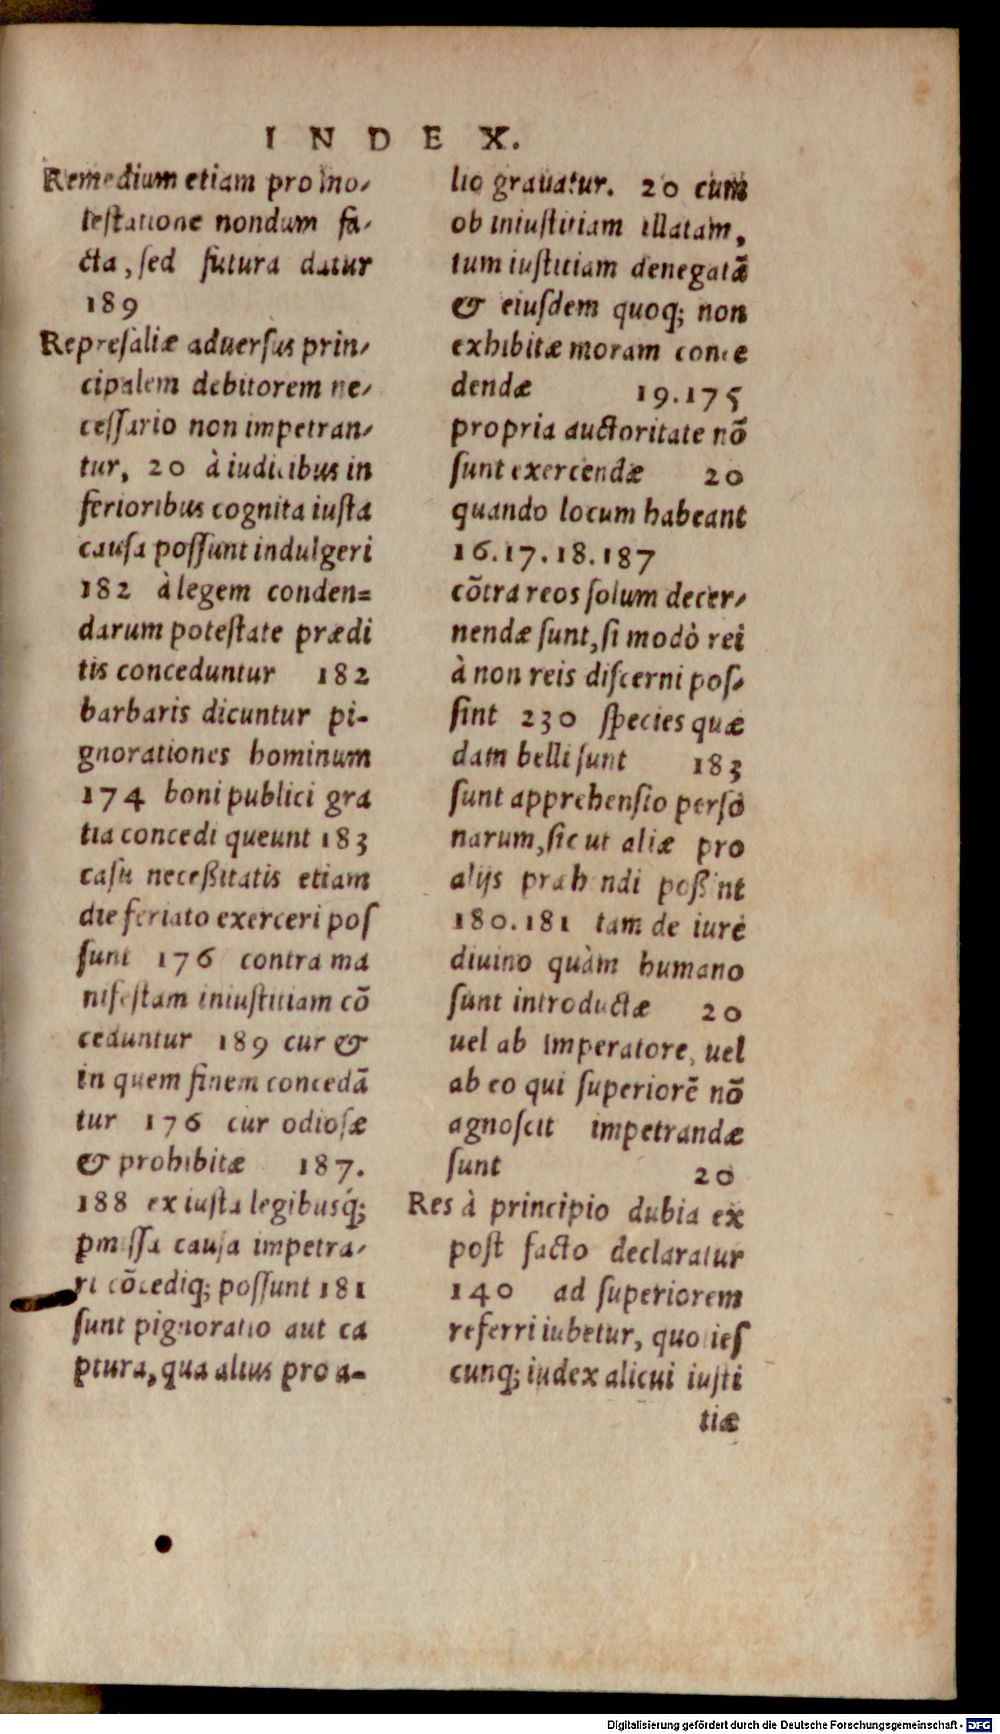 INDEX.
Remedium etiam pro ino-
testatione nondum fa-
cta, sed futura datur
189
Represaliæ aduersus prin-
cipalem debitorem ne-
cessario non impetran-
tur, 20 à iudicibus in
ferioribus cognita iusta
causa possunt indulgeri
182 à legem conden=
darum potestate prædi
tis conceduntur 182
barbaris dicuntur pi-
gnorationes hominum
174 boni publici gra
tia concedi queunt 183
casu neceßitatis etiam
die feriato exerceri pos
sunt 176 contra ma
nifestam iniustitiam cõ
ceduntur 189 cur &
in quem finem concedã
tur 176 cur odiosæ
& prohibitæ 187.
188 ex iusta legibusq́;
ꝑmissa causa impetra-
ri cõcediq; possunt 181
sunt pignoratio aut ca
ptura, qua alius pro a-
lio grauatur. 20 cum
ob iniustitiam illatam,
tum iustitiam denegatã
& eiusdem quoq; non
exhibitæ moram conce
dendæ 19.175
propria auctoritate nõ
sunt exercendæ 20
quando locum habeant
16.17.18.187
cõtra reos solum decer-
nendæ sunt, si modò rei
à non reis discerni pos-
sint 230 species quæ
dam belli sunt 183
sunt apprehensio perso
narum, sicut aliæ pro
alijs præhendi poßint
180.181 tam de iure
diuino quàm humano
sunt introductæ 20
uel ab Imperatore, uel
ab eo qui superiorẽ nõ
agnoscit impetrandæ
sunt 20
Res à principio dubia ex
post facto declaratur
140 ad superiorem
referri iubetur, quoties
cunq; iudex alicui iusti
tiæ
Digitalisierung gefördert durch die Deutsche Forschungsgemeinschaft - DFG